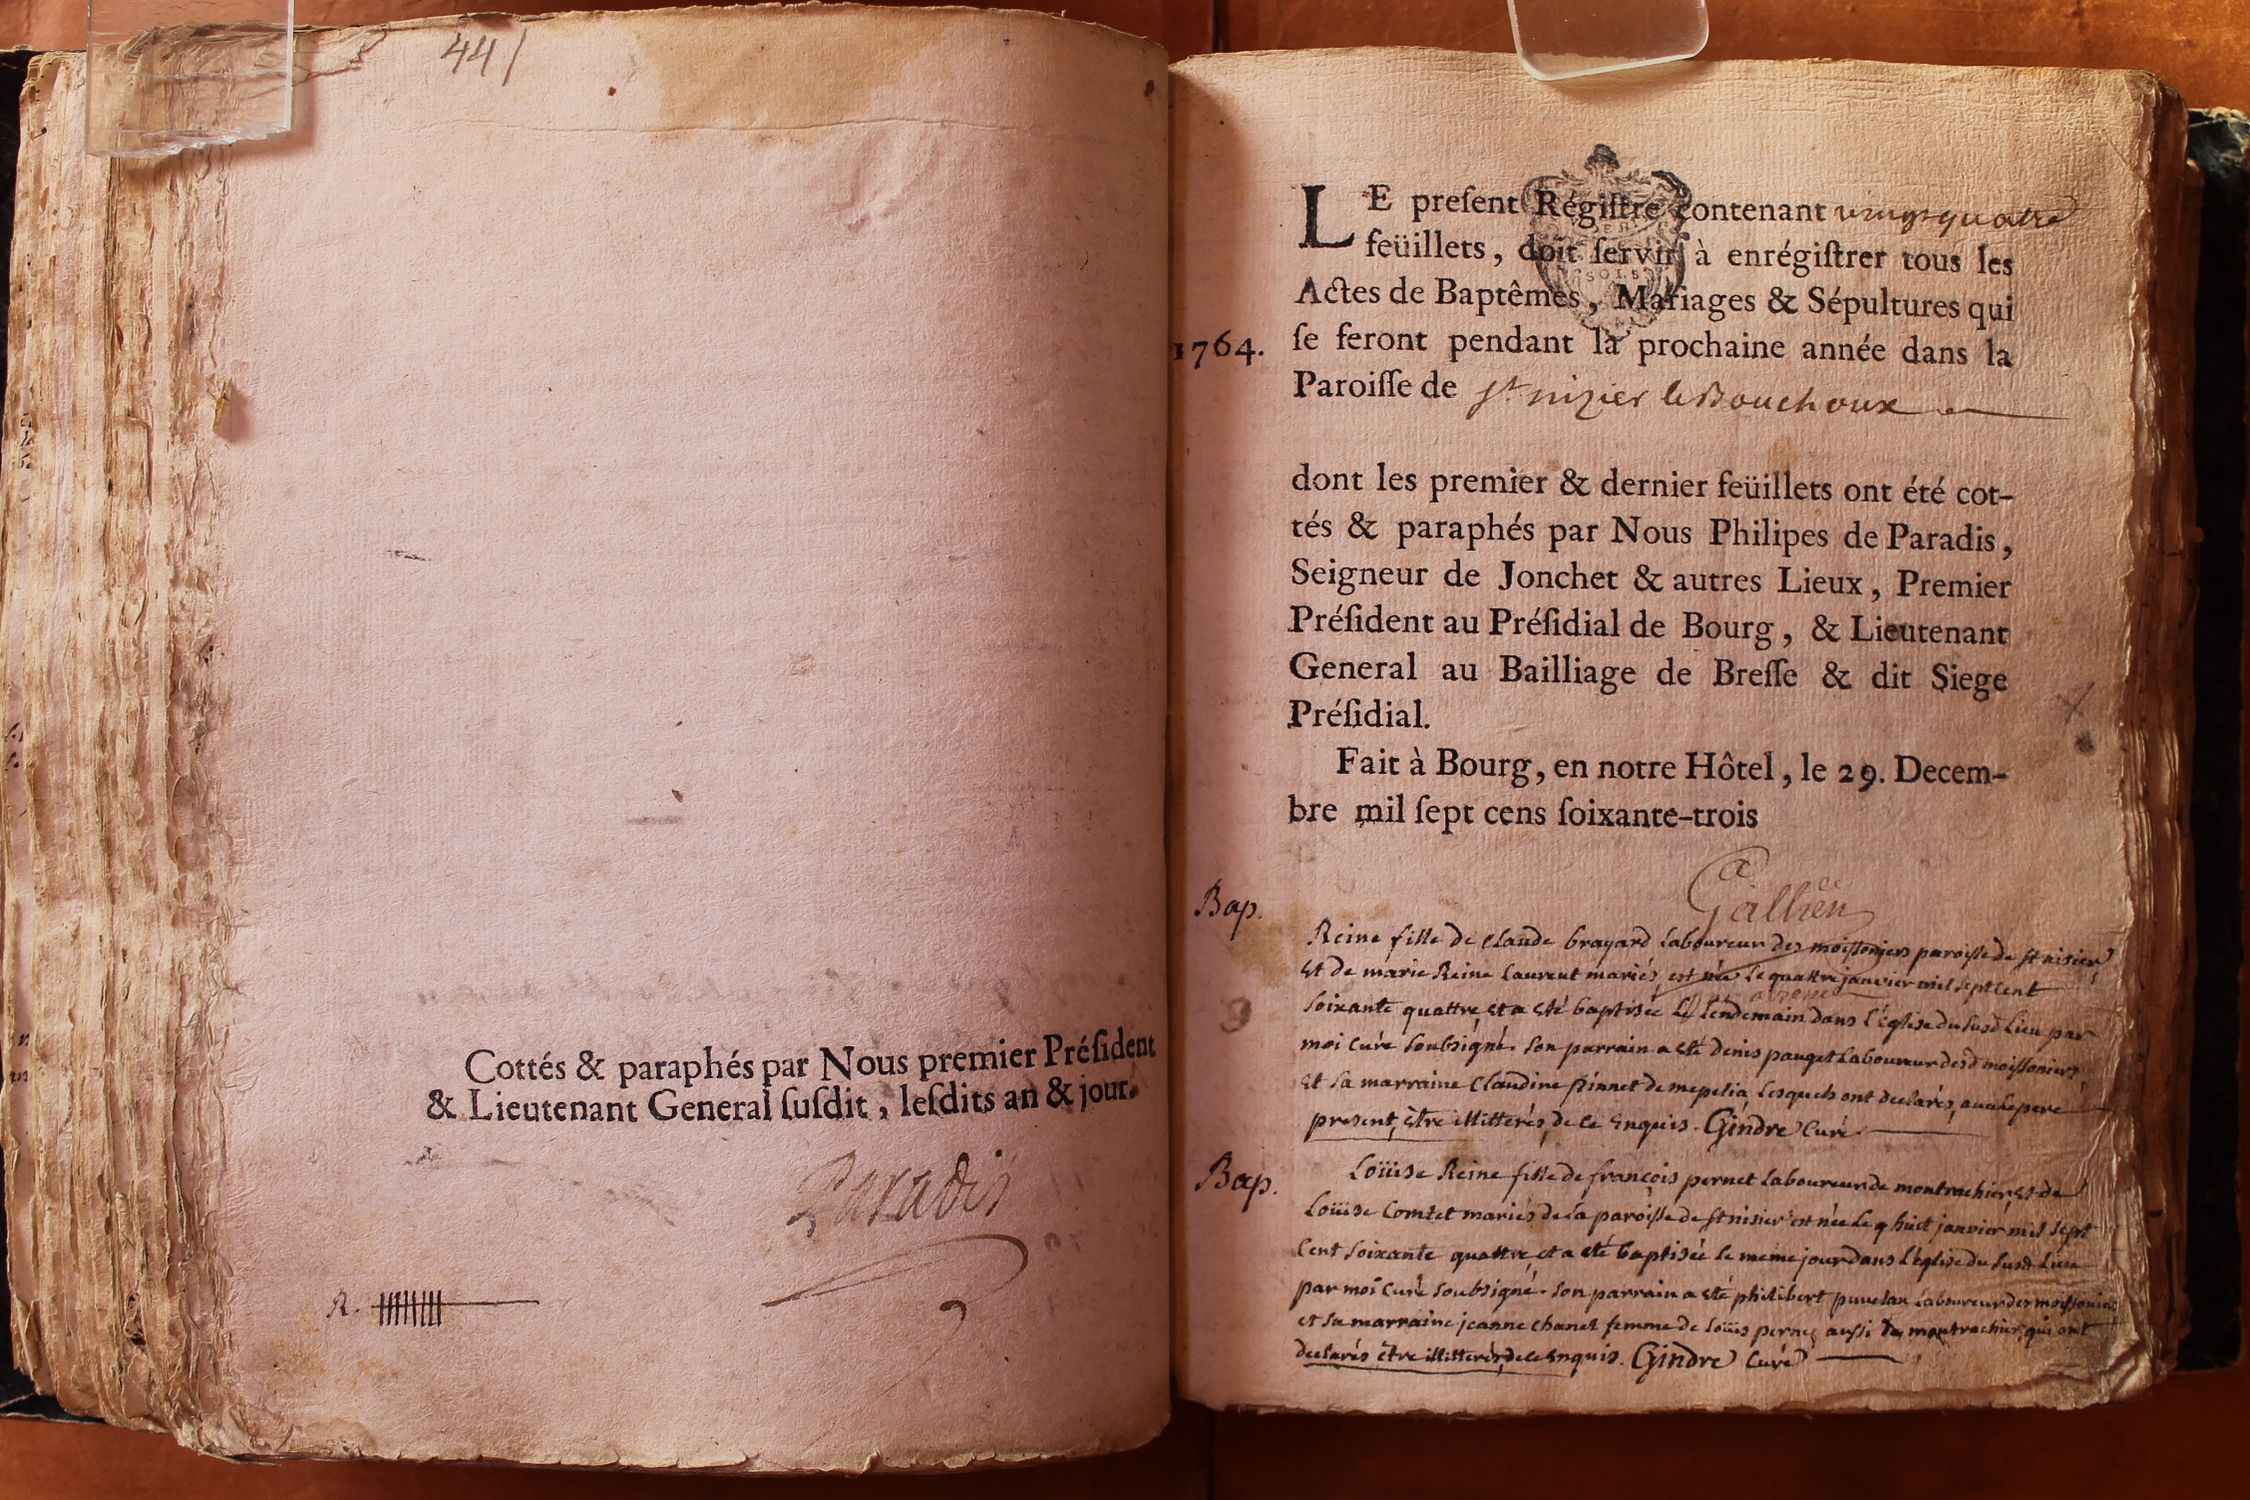 441
Cottés & paraphés par Nous premier Préſident
& Lieutenant General ſuſdit, leſdits an & jour.
Paradis
R.
LE preſent Régiſtre contenant vingt quatre
feüillets, doit ſervir à enrégiſtrer tous les
Actes de Baptêmes, Mariages & Sépultures qui
1764. ſe feront pendant la prochaine année dans la
Paroiſſe de st nizier le Bouchoux
dont les premier & dernier feüillets ont été cot-
tés & paraphés par Nous Philipes de Paradis,
Seigneur de Jonchet & autres Lieux, Premier
Préſident au Préſidial de Bourg, & Lieutenant
General au Bailliage de Breſſe & dit Siege
Préſidial.
Fait à Bourg, en notre Hôtel, le 29. Decem-
bre mil ſept cens ſoixante-trois
Gallien
Bap.
Reine fille de Claude brayard laboureur des moissoniers paroisse de st nisier
et de marie Reine laurent mariés, est née le quattre janvier mil sept cent
soixante quattre, et a eté baptisée le lendemain dans l'église du susd lieu par
moi curé soubsigné. son parrain a eté denis pauget laboureur desd moissoniers
et sa marraine Claudine pinnet de mepelia, lesquels ont declarés, avec le pere
present, être illitterés, de ce enquis. Gindre Curé
Bap.
Loüise Reine fille de françois pernet laboureur de montrachier, et de
Loüise Comtet mariés de la paroisse de st nisier est née le huit janvier mil sept
cent soixante quattre, et a eté baptisée le meme jour dans l'église du susd lieu
par moi curé soubsigné. son parrain a eté philibert puvelan laboureur des moissoniers
et sa marraine jeanne chanel femme de loüis pernet aussi de montrachier, qui ont
declarés être illitterés, de ce enquis. Gindre Curé